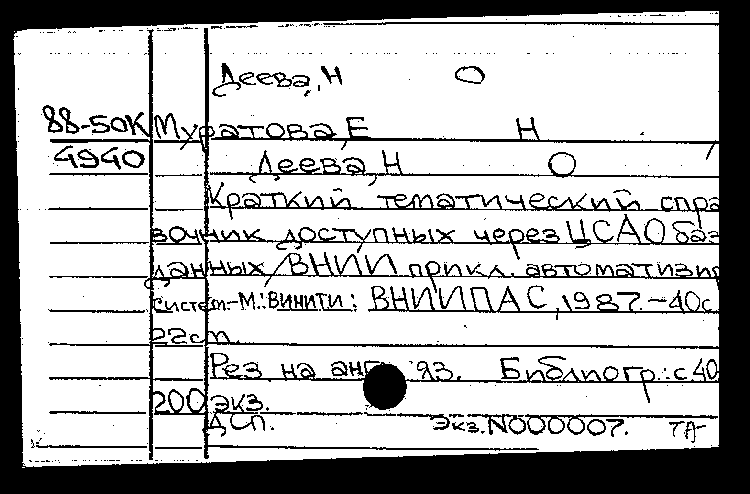 Деева, Н О
88-50К Муратова, Е Н
4940 Деева, Н О
Краткий тематический спра
вочник доступных через ЦСАО баз
данных / ВНИИ прикл. автоматизир
систем.-М.: ВИНИТИ: ВНИИПАС, 1987.-40с
22см.
Рез на анг яз. Библиогр.: с 40
200 экз.
ДСП. Экз. N000007.